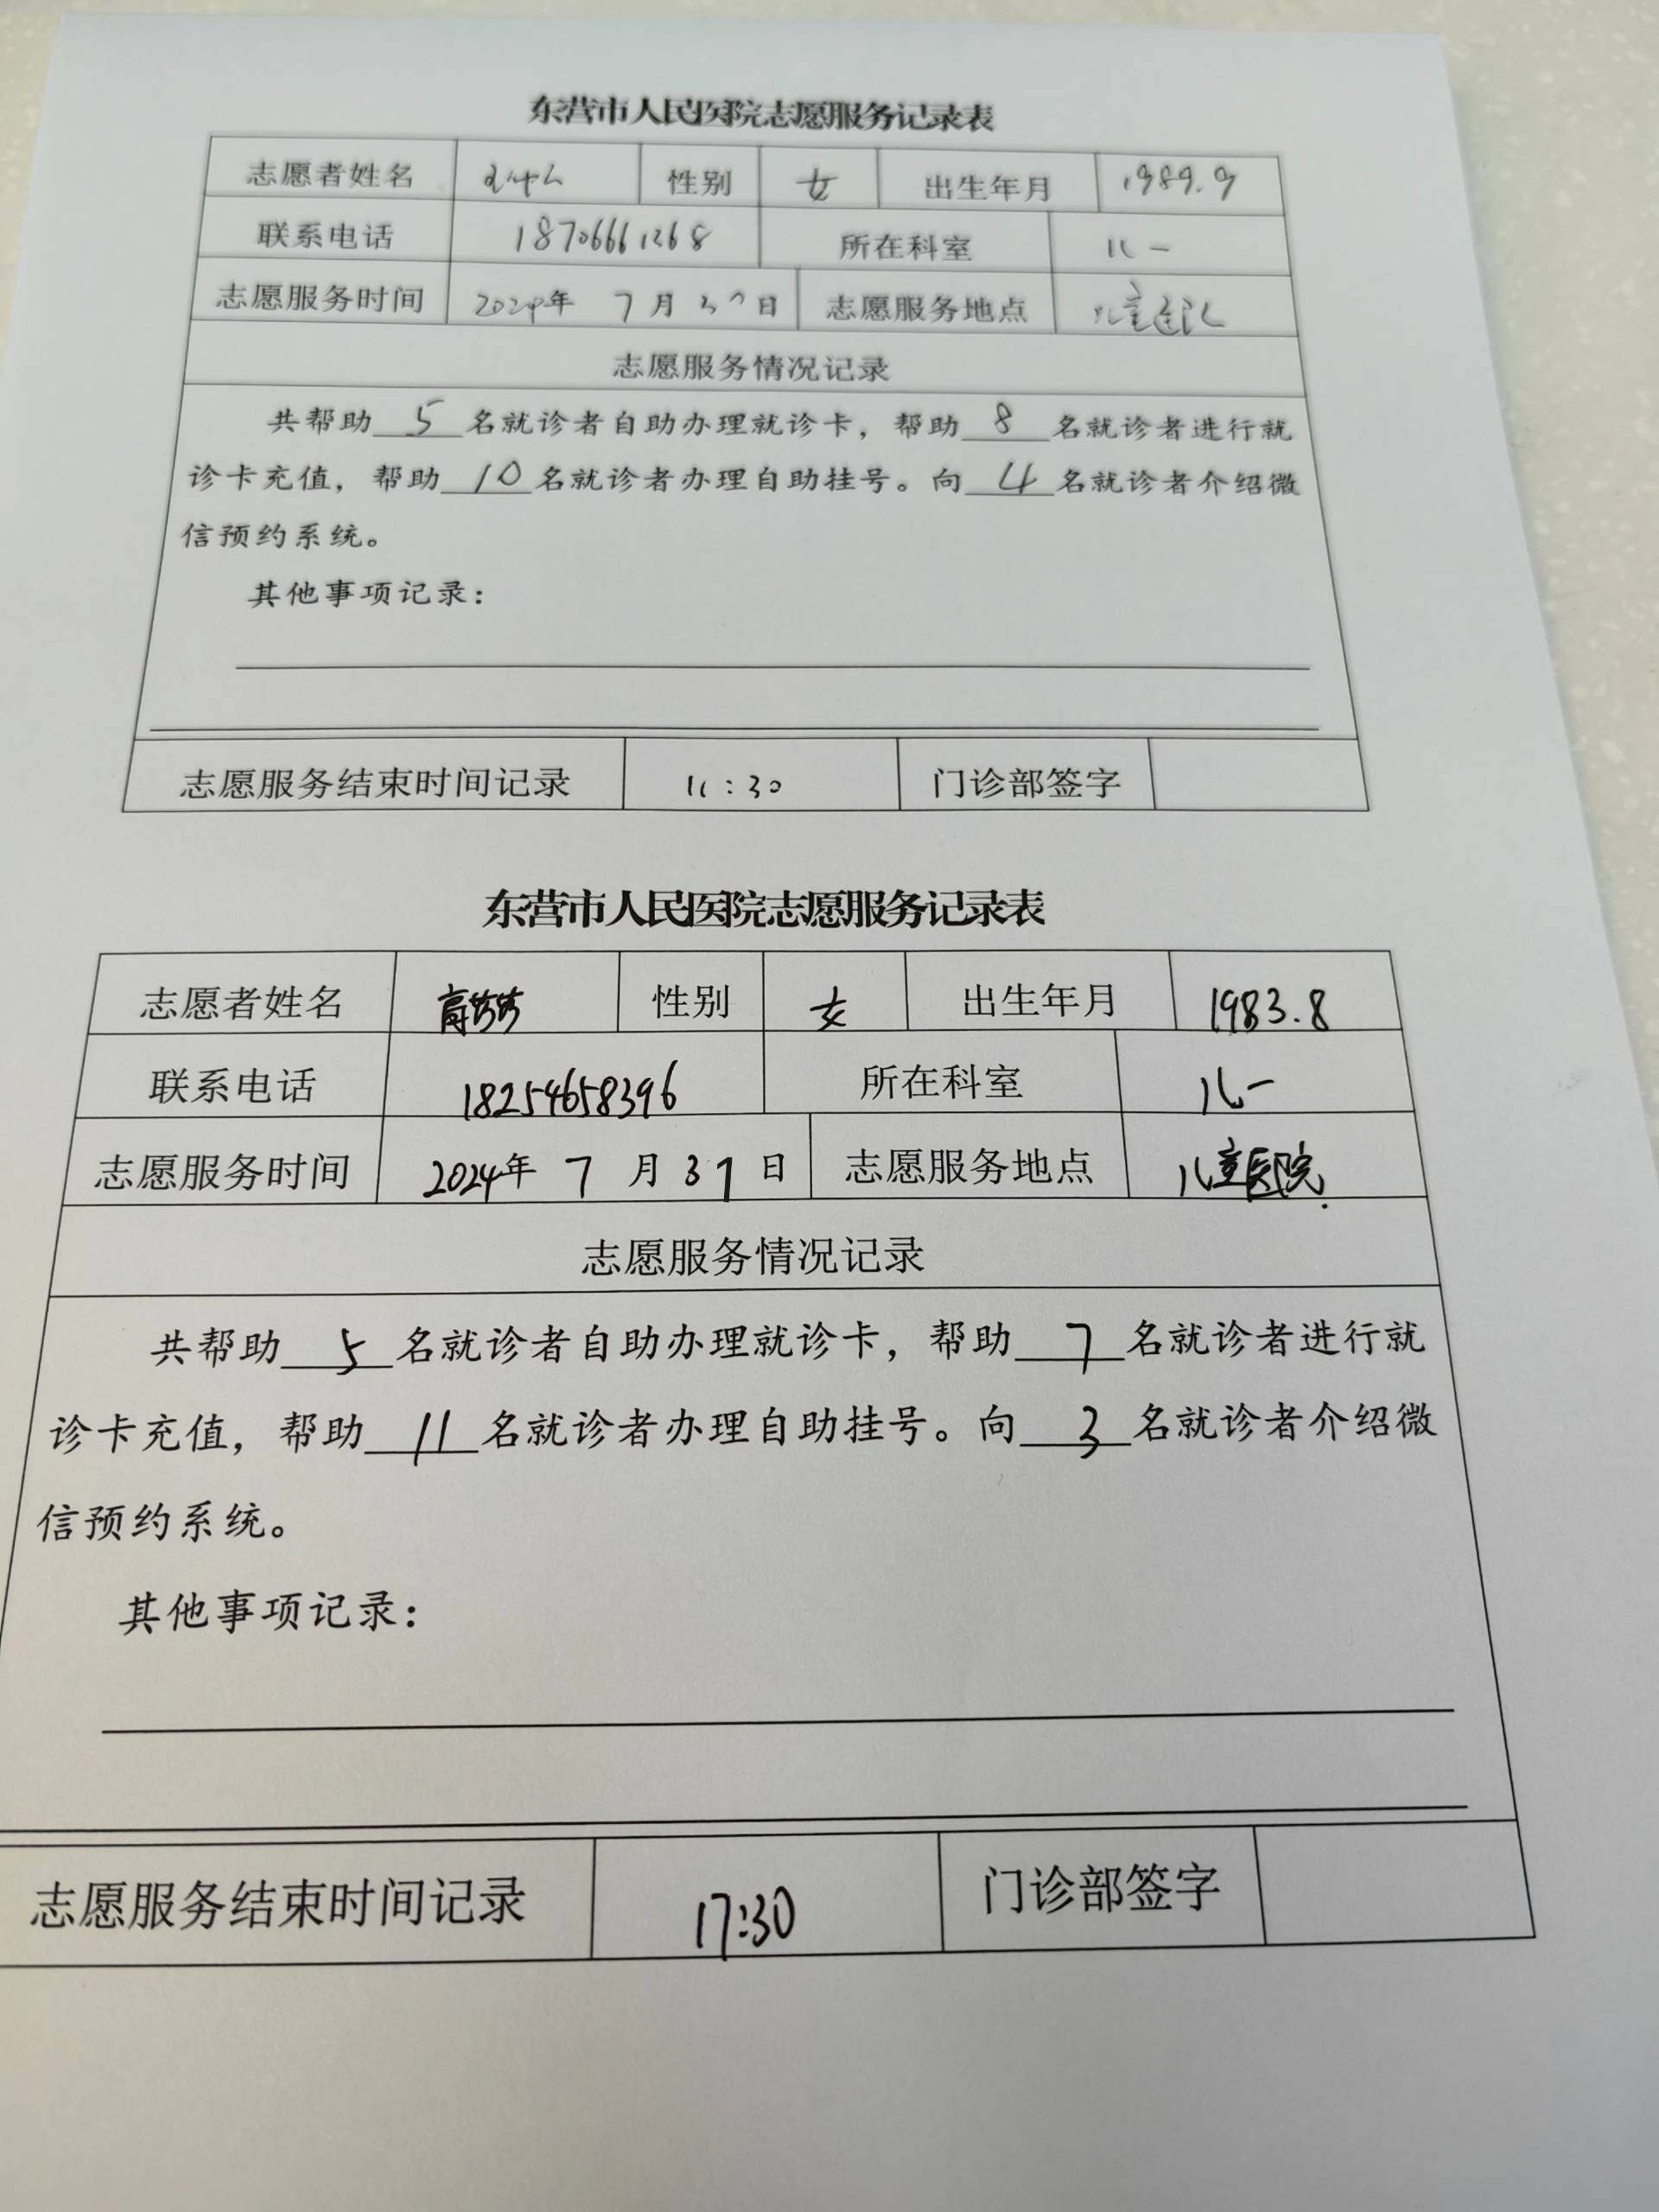 东营市人民医院志愿服务记录表
志愿者姓名 性别 女 出生年月 1989.9
联系电话 18706661268 所在科室 儿一
志愿服务时间 2024年 7月 30日 志愿服务地点 儿童医院
志愿服务情况记录
共帮助 5 名就诊者自助办理就诊卡，帮助 8 名就诊者进行就
诊卡充值，帮助 10 名就诊者办理自助挂号。向 4 名就诊者介绍微
信预约系统。
其他事项记录：
志愿服务结束时间记录 11:30 门诊部签字
东营市人民医院志愿服务记录表
志愿者姓名 性别 女 出生年月 1983.8
联系电话 18254658396 所在科室 儿一
志愿服务时间 2024年 7 月 31 日 志愿服务地点 儿童医院.
志愿服务情况记录
共帮助 5 名就诊者自助办理就诊卡，帮助 7 名就诊者进行就
诊卡充值，帮助 11 名就诊者办理自助挂号。向 3 名就诊者介绍微
信预约系统。
其他事项记录：
志愿服务结束时间记录 17:30 门诊部签字